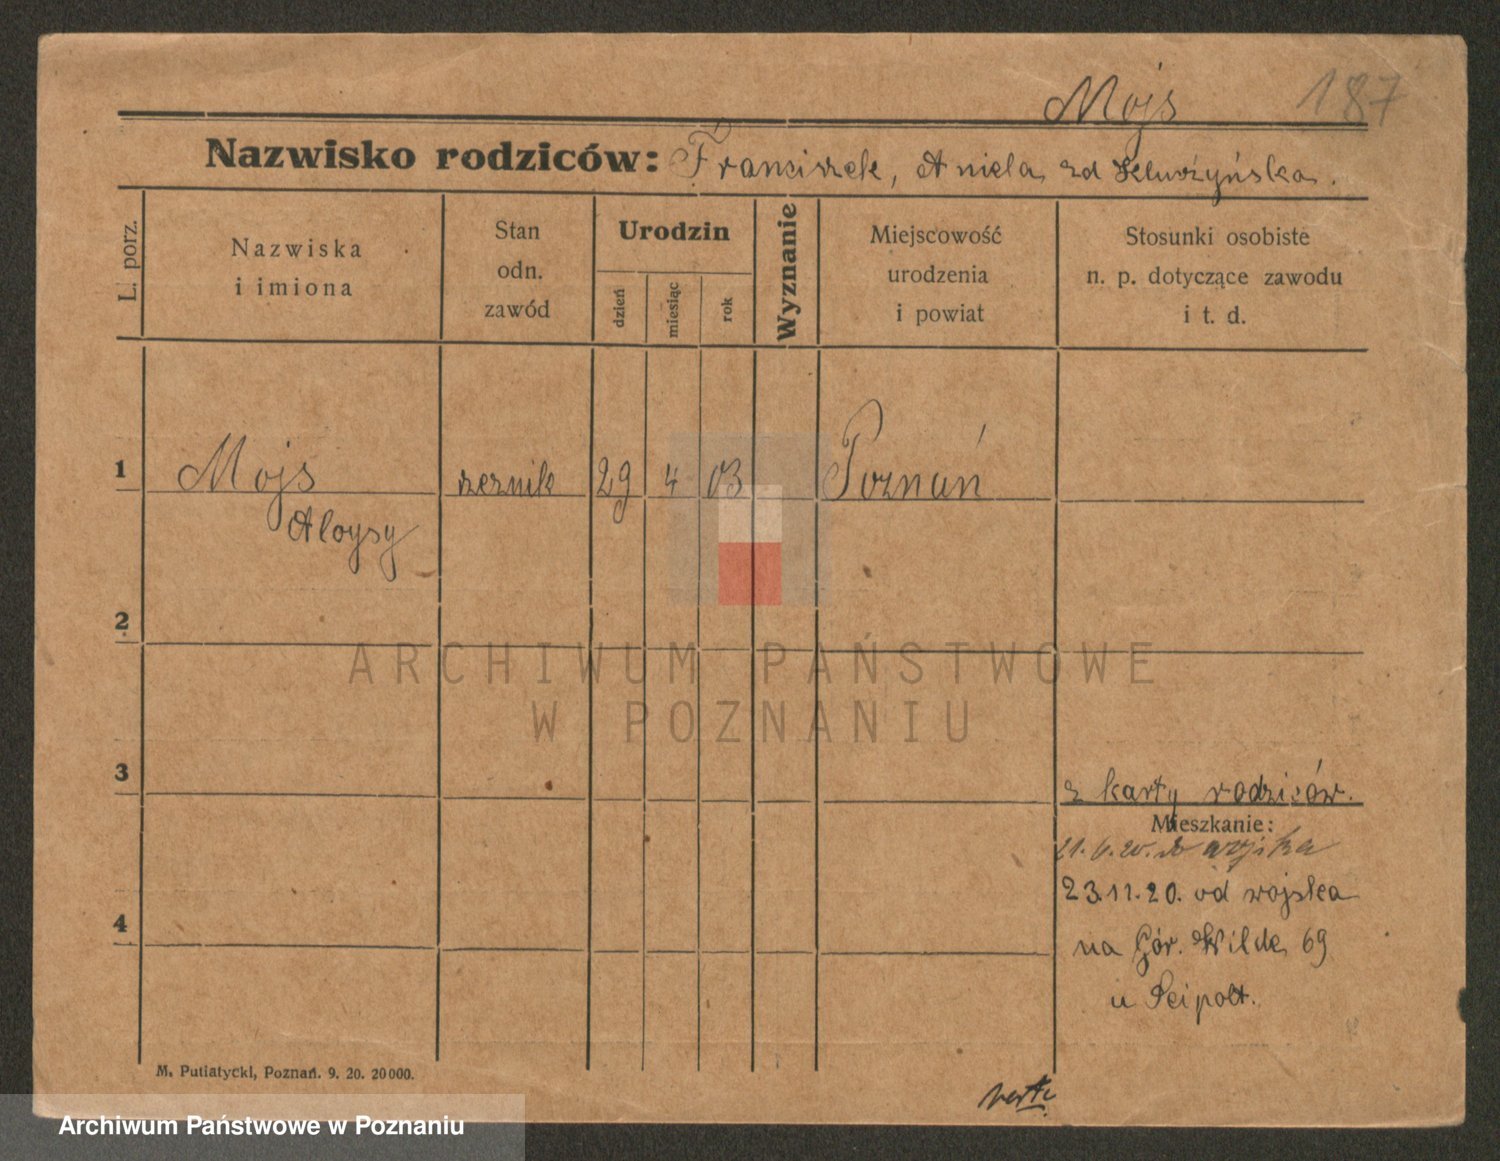 Mojs 187
Nazwisko rodziców: Franciszek, Aniela zd
L. porz.
Nazwiska
i imiona
Stan
odn.
zawód
Urodzin
dzień
miesiąc
rok
Wyznanie
Miejscowość
urodzenia
i powiat
Stosunki osobiste
n. p. dotyczące zawodu
i t. d.
1 Mojs rzeźnik 29 4 03 Poznań
Aloysy
2
3
z karty rodziców.
Mieszkanie:
do wojska
23.11.20. od wojska
4
na Gór. Wilde 69
u Seipolt.
M. Putiatycki, Poznań. 9. 20. 20000.
verte
ARCHIWUM PAŃSTWOWE
W POZNANIU
Archiwum Państwowe w Poznaniu